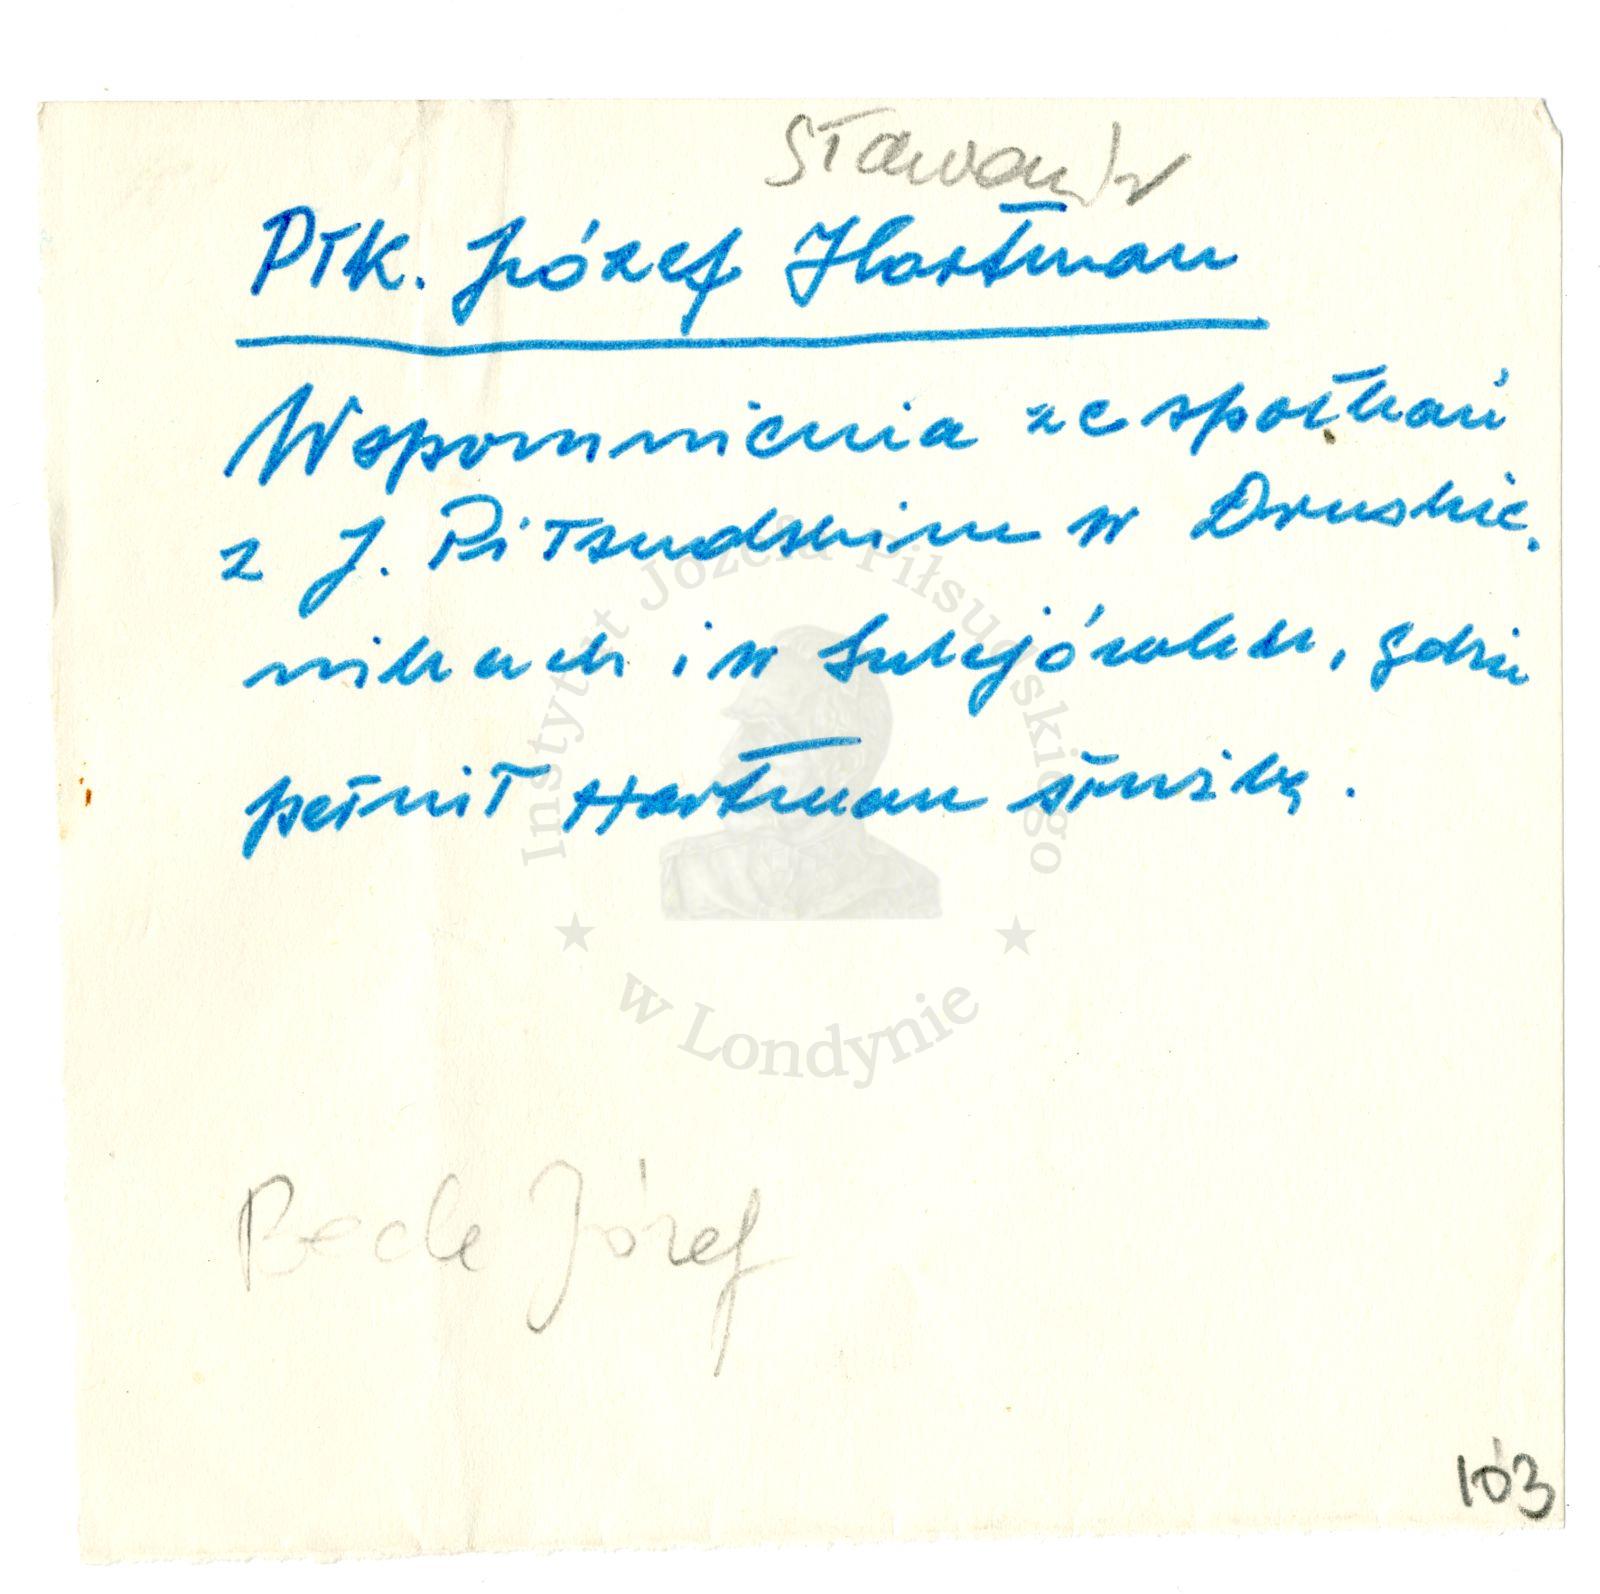 Płk. Józef Hartman
Wspomnienia ze spotkań
z J. Piłsudskim w Druskie.
nikach i w Sulejówku, gdzie
pełnił Hartman służbę.
Instytut Józefa Piłsudskiego
w Londynie
Beck Józef
103